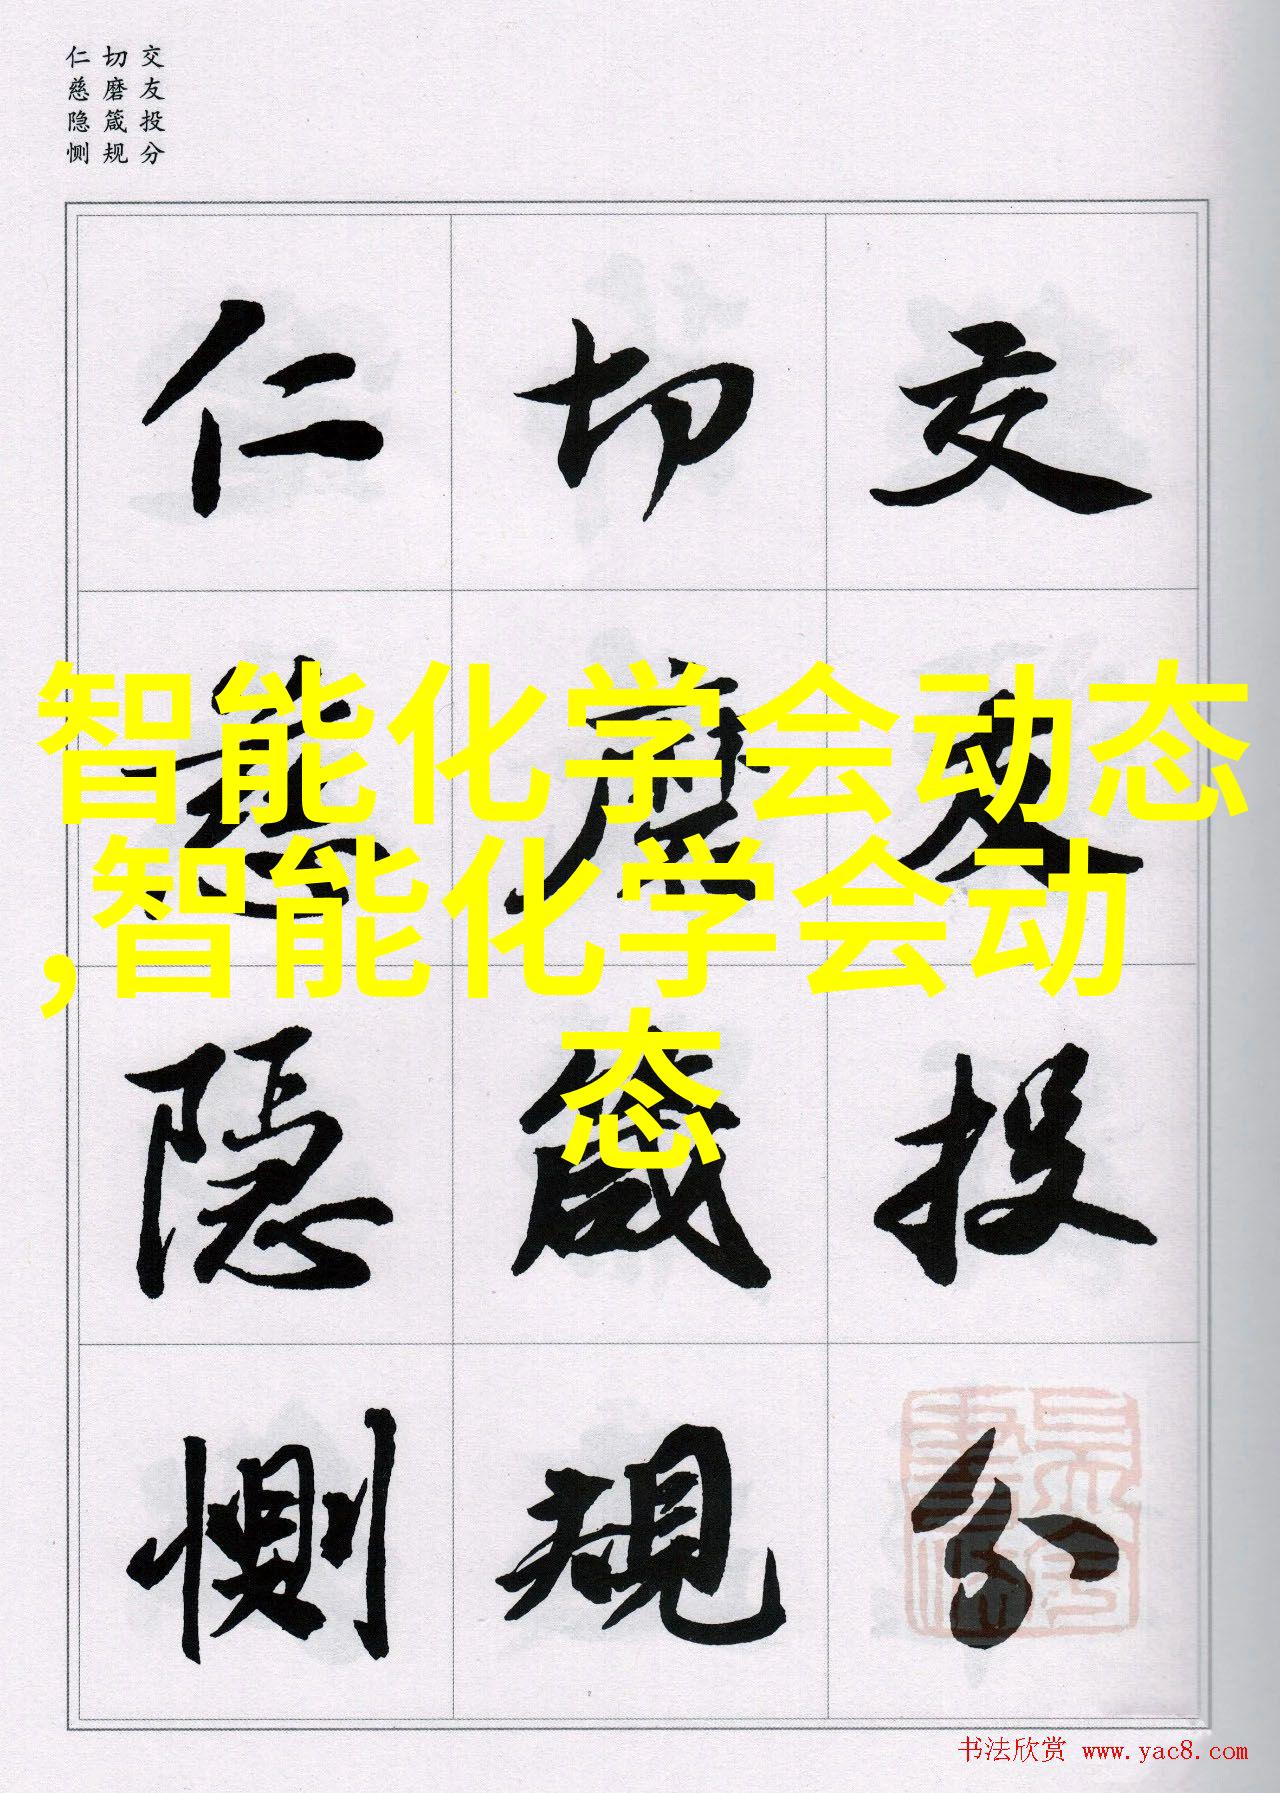 交友投分
切磨箴规
仁慈隐恻
交友投分
切磨箴規
仁慈隱惻
智能化学会动态
,智能化学会动
态
书法欣赏 www.yac8.com